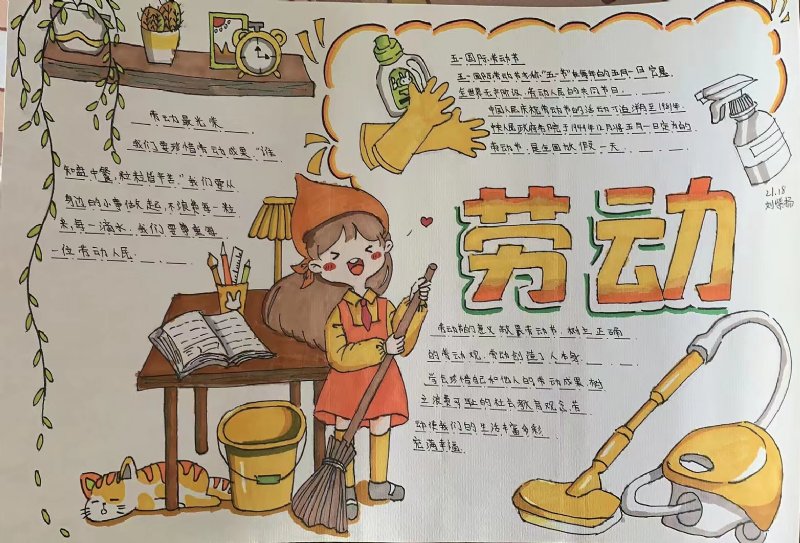 五一国际劳动节
五一国际劳动节又称"五一节"在每年的五月一日它是
全世界无产阶级、劳动人民的共同节日.
中国人民庆祝劳动节的活动可追溯至1918年.
中央人民政府政务院于1949年12月将五月一日定为的
劳动节.是全国放假一天
劳动最光荣
我们要珍惜劳动成果"谁
知盘中餐,粒粒皆辛苦."我们要从
身边的小事做起,不浪费每一粒
米,每一滴水.我们要尊重每
一位劳动人民.
21.18
劳动
劳动节的意义 就是劳动节.树立正确
的劳动观.劳动创造了人
学会珍惜自己和他人的劳动成果 树
立浪费可耻的社会教育观念劳
动使我们的生活丰富多彩
充满幸福